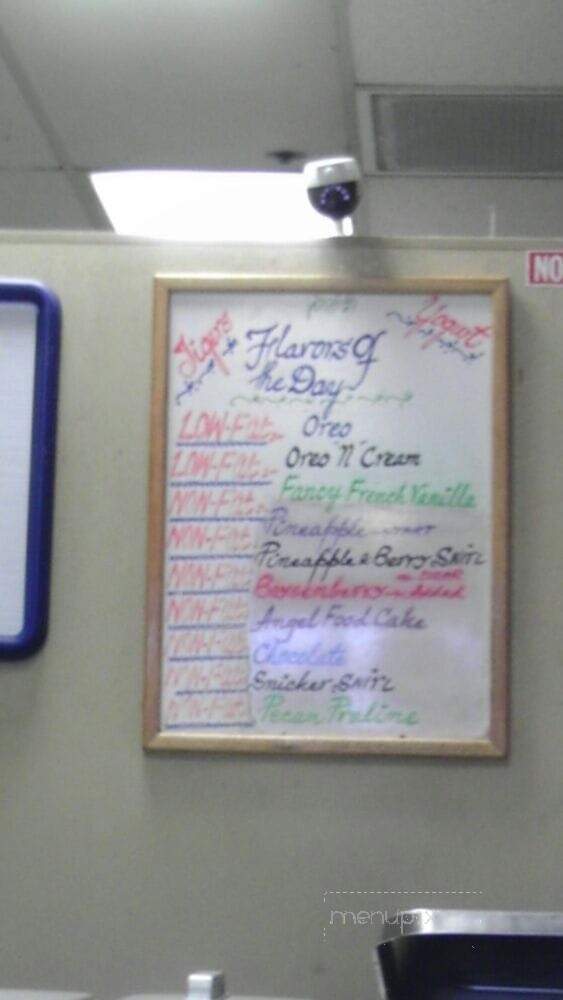 Tigers Yogurt
Flavors of
the Day
LOW-Fat Oreo
LOW-Fat Oreo "N" Cream
NON-Fat Fancy French Vanilla
NON-Fat Pineapple
NON-Fat Pineapple & Berry SWIRL
NON-Fat Boysenberry no SUGAR Added
NON-Fat Angel Food Cake
NON-Fat Chocolate
NON-Fat Snicker SWIRL
NON-Fat Pecan Praline
NO
menupix